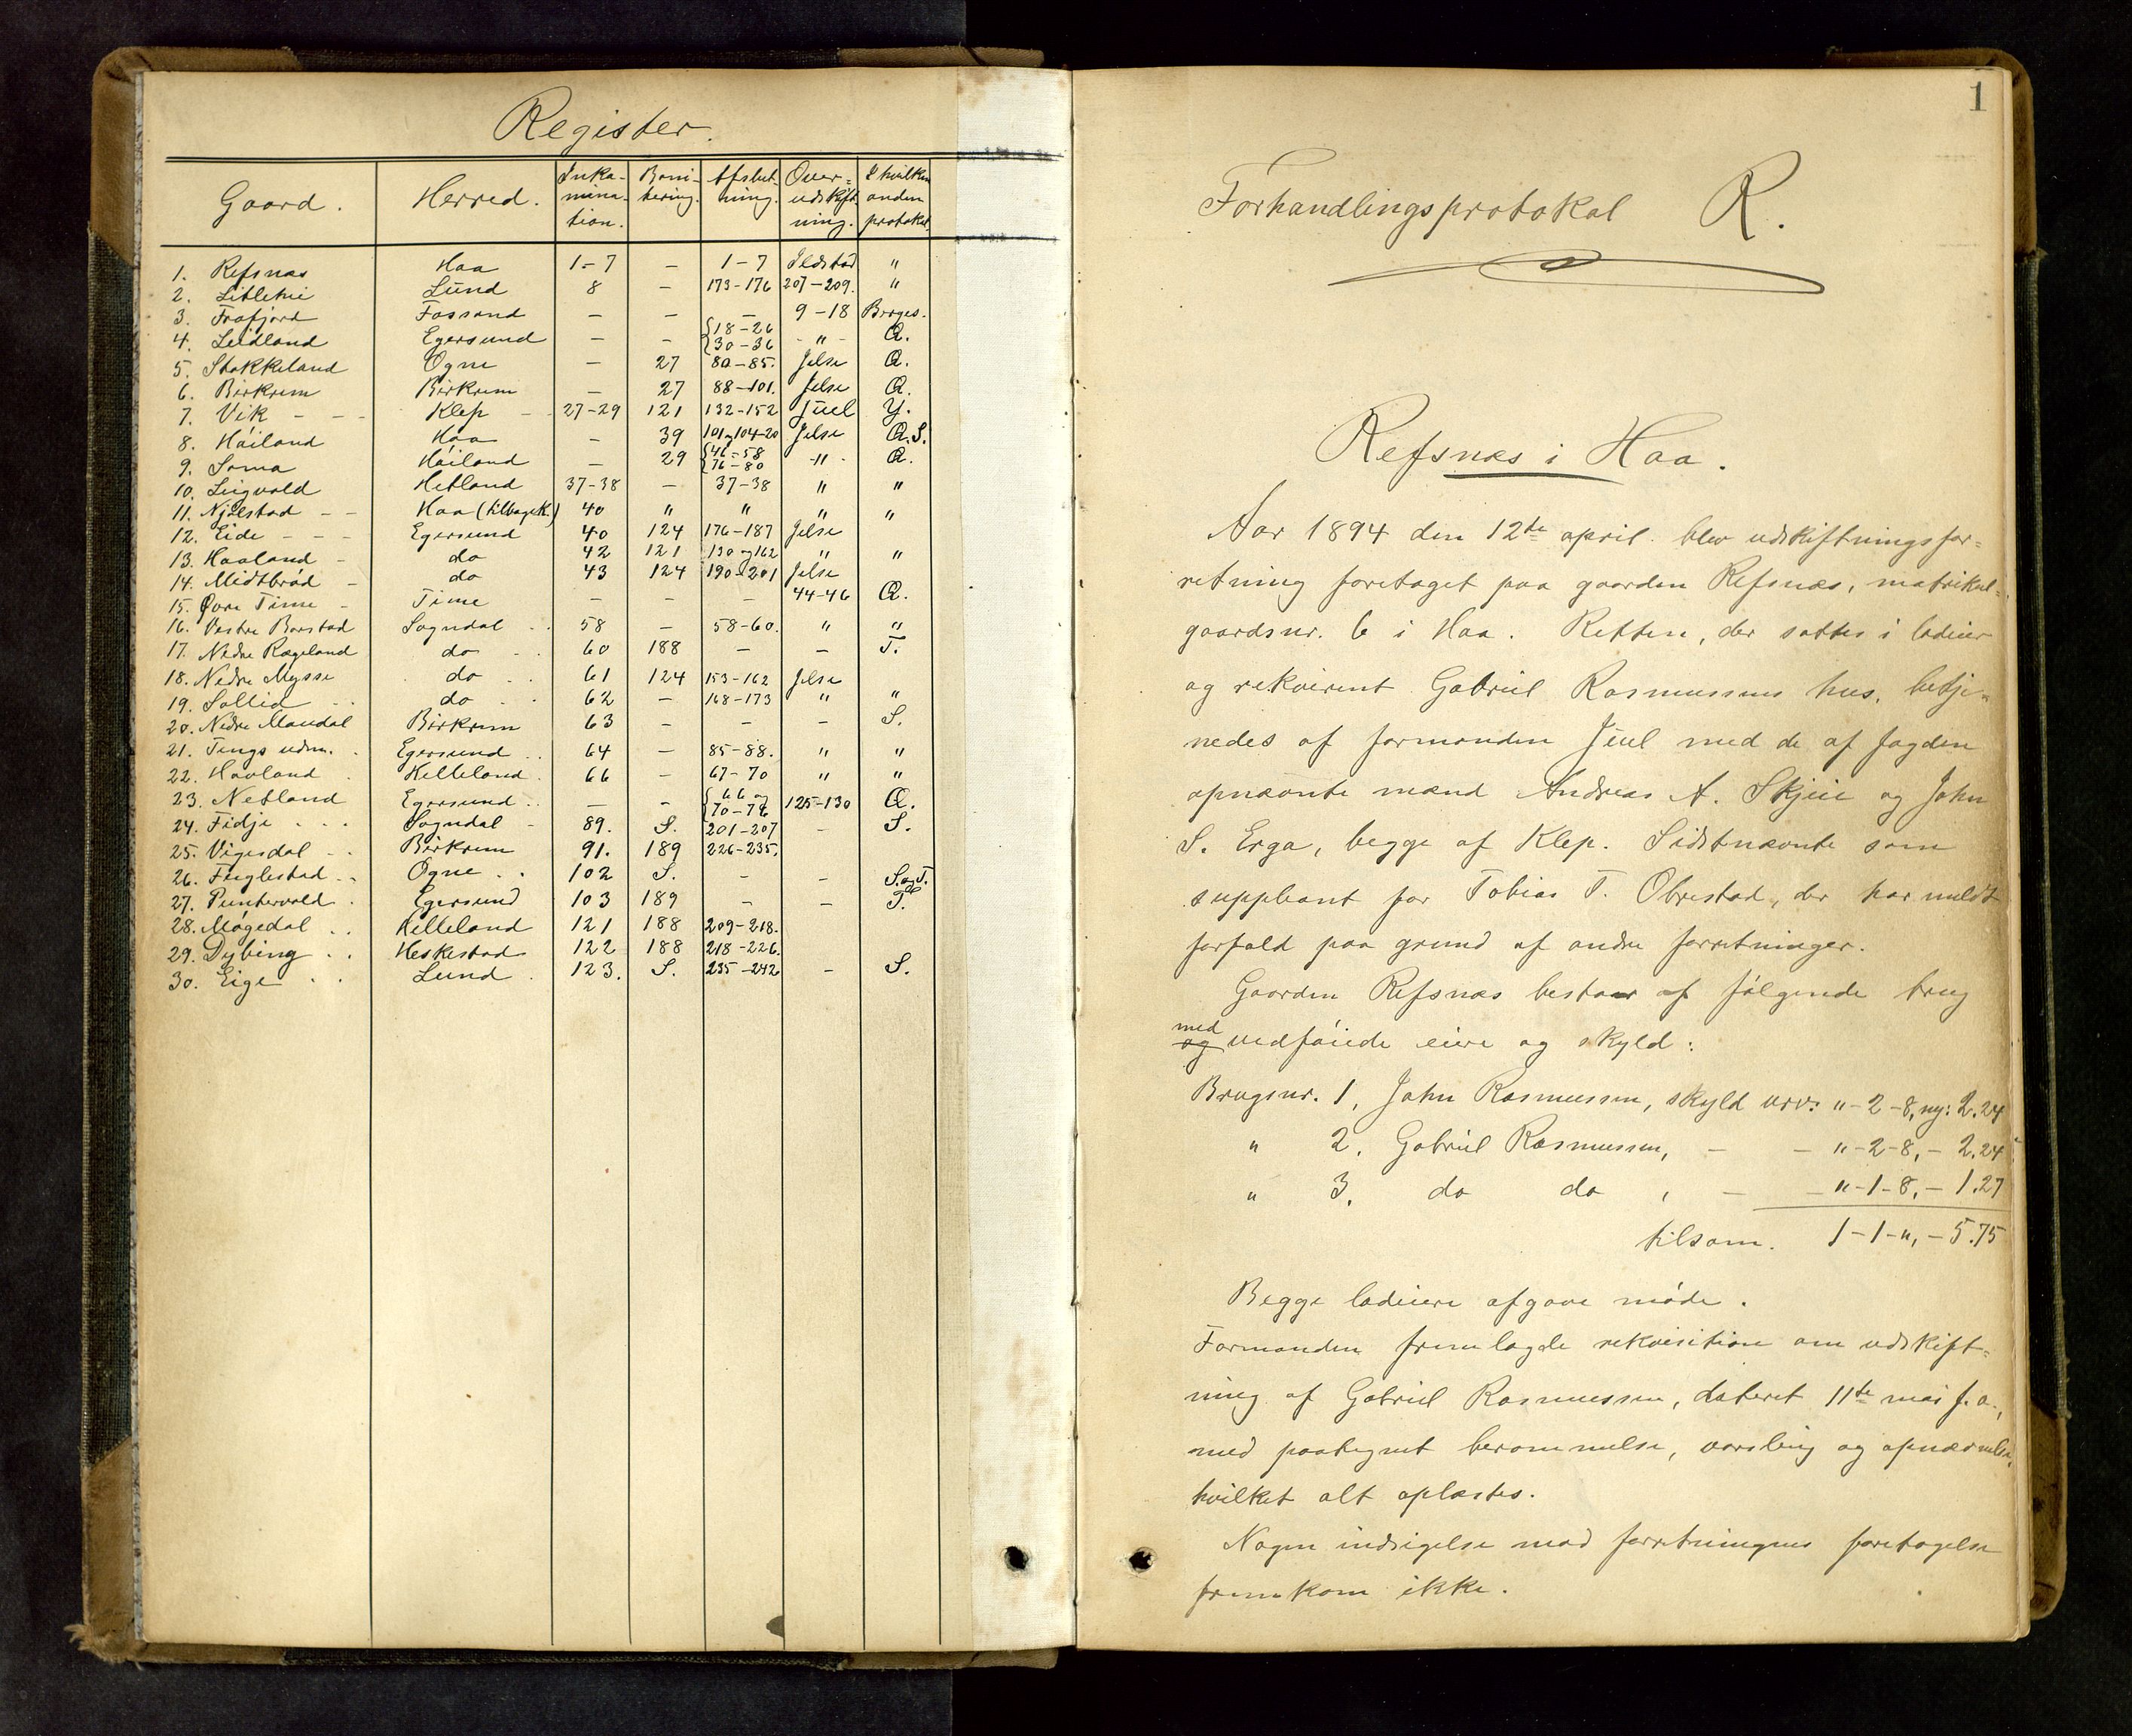 Register.
Gaard. Herred. Inka-mina-tion. Boni-tering. Afslut-ning. Over-udskift-ning. I hvilken anden protokol.
1. Refsnæs Haa 1-7 — 1-7 Ildstad "
2. Lund 8 — 173-176 207-209. "
3. Frafjord Fossand — — — 9-18 Borges.
4. Leidland Egersund — — {18-26 30-36 - " - Q.
5. Stokkeland Ogne — 27 80-85. Jelse Q.
6. Birkrem Birkrem — 27 88-101. Jelse Q.
7. Vik - - - Klep - - 27-29 121 132-152 Juel Y.
8. Høiland Haa — 39 101 og 104-20 Jelse Q.S.
9. Soma Høiland — 29 {46-58 76-80 - " - Q.
10. Hetland 37-38 — 37-38 " "
11. Njølstad - - Haa (tilbagek.) 40 " " " "
12. Eide - - - Egersund 40 124 176-187 Jelse
13. Havland - do 42 121 130 og 162 " "
14. Midtbrød - do 43 124 190-201 Jelse
15. Øvre Time - Time — — — 44-46 Q.
16. Vestre Barstad Sogndal - - 58 — 58-60. " "
17. Nedre Rægeland do - - 60 188 — — T.
18. Nedre Mysse do - - 61 124 153-162 Jelse
19. Sollid - - do - - 62 — 168-173 " "
20. Nedre Maudal Birkrem 63 — — — S.
21. Tengs udm. - Egersund - - 64 — 85-88. " "
22. Havland - Helleland - 66 — 67-70 " "
23. Netland Egersund - - — — {66 og 70-76 125-130 Q.
24. Fidje - - - Sogndal - 89. S. 201-207 — S.
25. Vigesdal - - Birkrem 91. 189 226-235.
26. Fuglestad - - Ogne - - 102 S. — — S. og T.
27. Puntervold - Egersund 103 189 — — T.
28. Møgedal - - Helleland 121 188 209-218.
29. Dybing - - Heskestad 122 188 218-226.
30. Eige - - Lund - 123. S. 235-242 — S.
1
Forhandlingsprotokol R.
Refsnæs i Haa.
Aar 1894 den 12te april blev udskiftningsfor-
retning foretaget paa gaarden Refsnæs, matrikul-
gaardsnr. 6 i Haa. Retten, der sattes i lodeier
og rekvirent Gabriel Rasmussens hus, betje-
nedes af formanden Juel med de af fogden
opnævnte mænd Andreas A. Skjeie og John
S. Erga, begge af Klep. Sidstnævnte som
suppleant for Tobias T. Obrestad, der har meldt
forfald paa grund af andre forretninger.
Gaarden Refsnæs bestaar af følgende brug
med
og vedføiede eiere og skyld:
Brugsnr. 1, John Rasmussen, skyld urv: "-2-8, ny: 2.24
" 2, Gabriel Rasmussen, — — "-2-8, - 2.24
" 3, do do , — — "-1-8, - 1.27
tilsam. 1-1-", - 5.75
Begge lodeiere afgave møde.
Formanden fremlagde rekvisition om udskift-
ning af Gabriel Rasmussen, dateret 11te mai f.a.,
med paategnet berammelse, varsling og opnævnelse,
hvilket alt oplæstes.
Nogen indsigelse mod forretningens foretagelse
fremkom ikke.